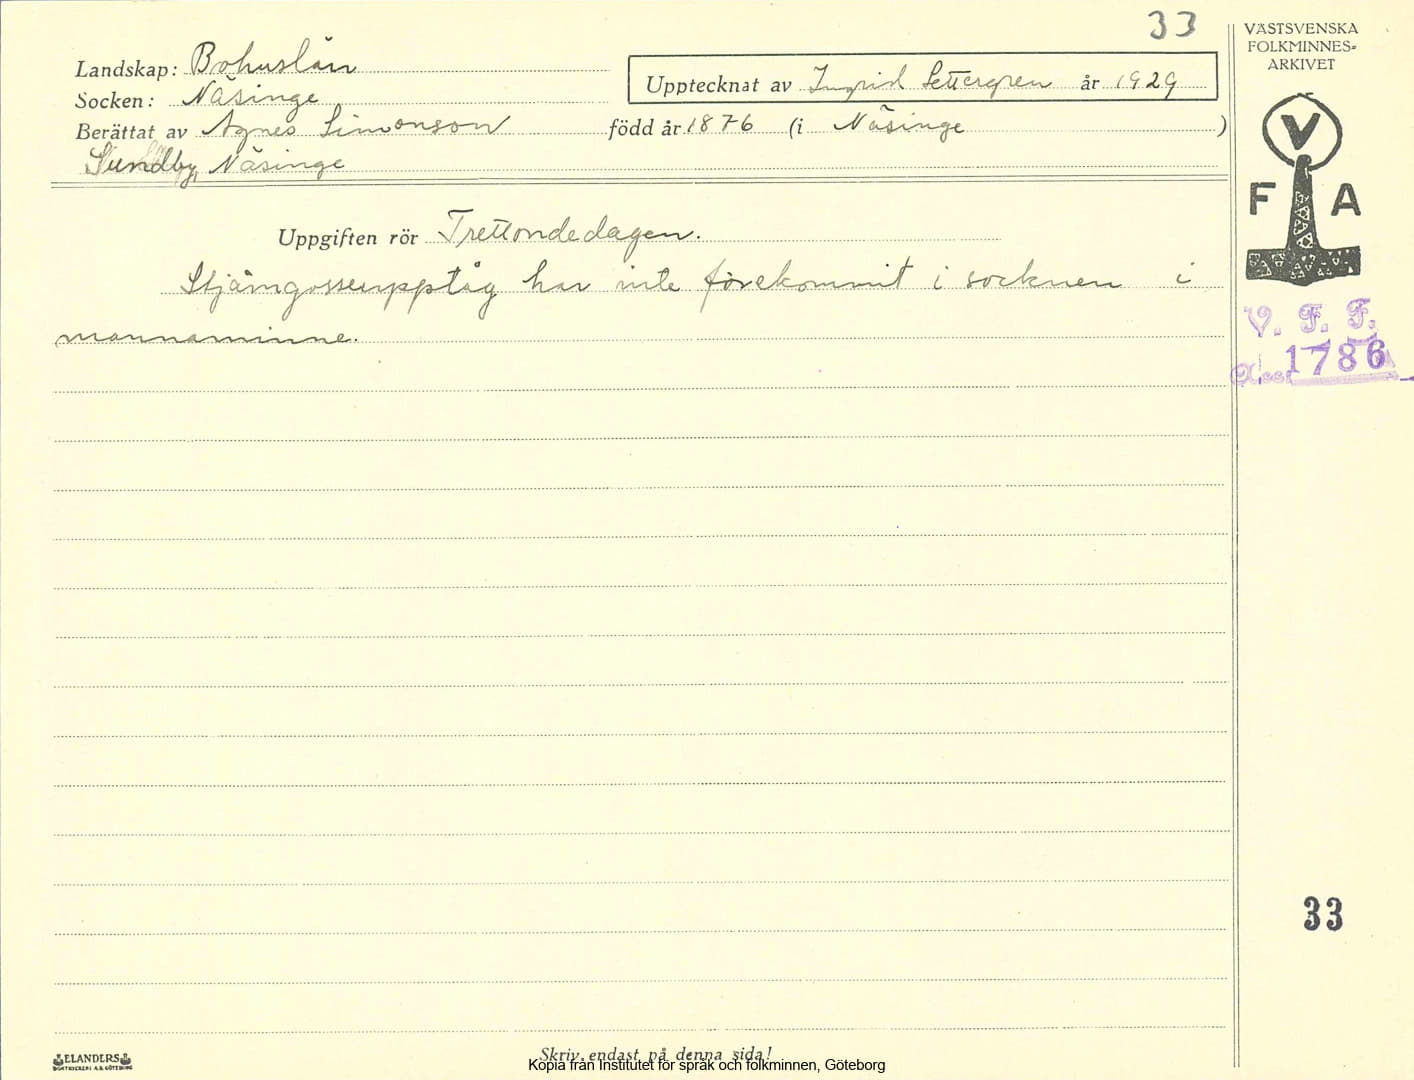 33
Landskap: Bohuslän
Socken: Näsinge
Upptecknat av Ingrid Settergren år 1929
Berättat av Agnes Simonson född år 1876 (i Näsinge )
Sundby, Näsinge
Uppgiften rör Trettondedagen.
Stjärngosseupptåg har inte förekommit i socknen i
mannaminne.
VÄSTSVENSKA
FOLKMINNES-
ARKIVET
V
F A
V. F. F.
Acc. 1786
33
ELANDERS
BOKTRYCKERI A.B. GÖTEBORG
Skriv endast på denna sida!
Kopia från Institutet för språk och folkminnen, Göteborg